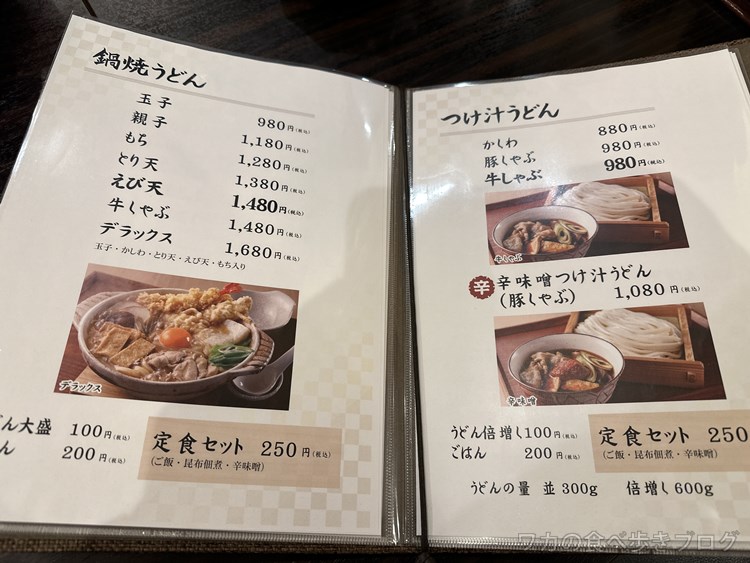 鍋焼うどん
玉子 980円(税込)
親子 1,180円(税込)
もち 1,280円(税込)
とり天 1,380円(税込)
えび天 1,480円(税込)
牛しゃぶ 1,480円(税込)
デラックス 1,680円(税込)
玉子・かしわ・とり天・えび天・もち入り
デラックス
ん大盛 100円(税込)
ん 200円(税込)
定食セット 250円(税込)
(ご飯・昆布佃煮・辛味噌)
つけ汁うどん
かしわ 880円(税込)
豚しゃぶ 980円(税込)
牛しゃぶ 980円(税込)
牛しゃぶ
辛 辛味噌つけ汁うどん
(豚しゃぶ) 1,080円(税込)
辛味噌
うどん倍増し100円(税込)
ごはん 200円(税込)
定食セット 250
(ご飯・昆布佃煮・辛味噌)
うどんの量 並300g 倍増し600g
ワカの食べ歩きブログ